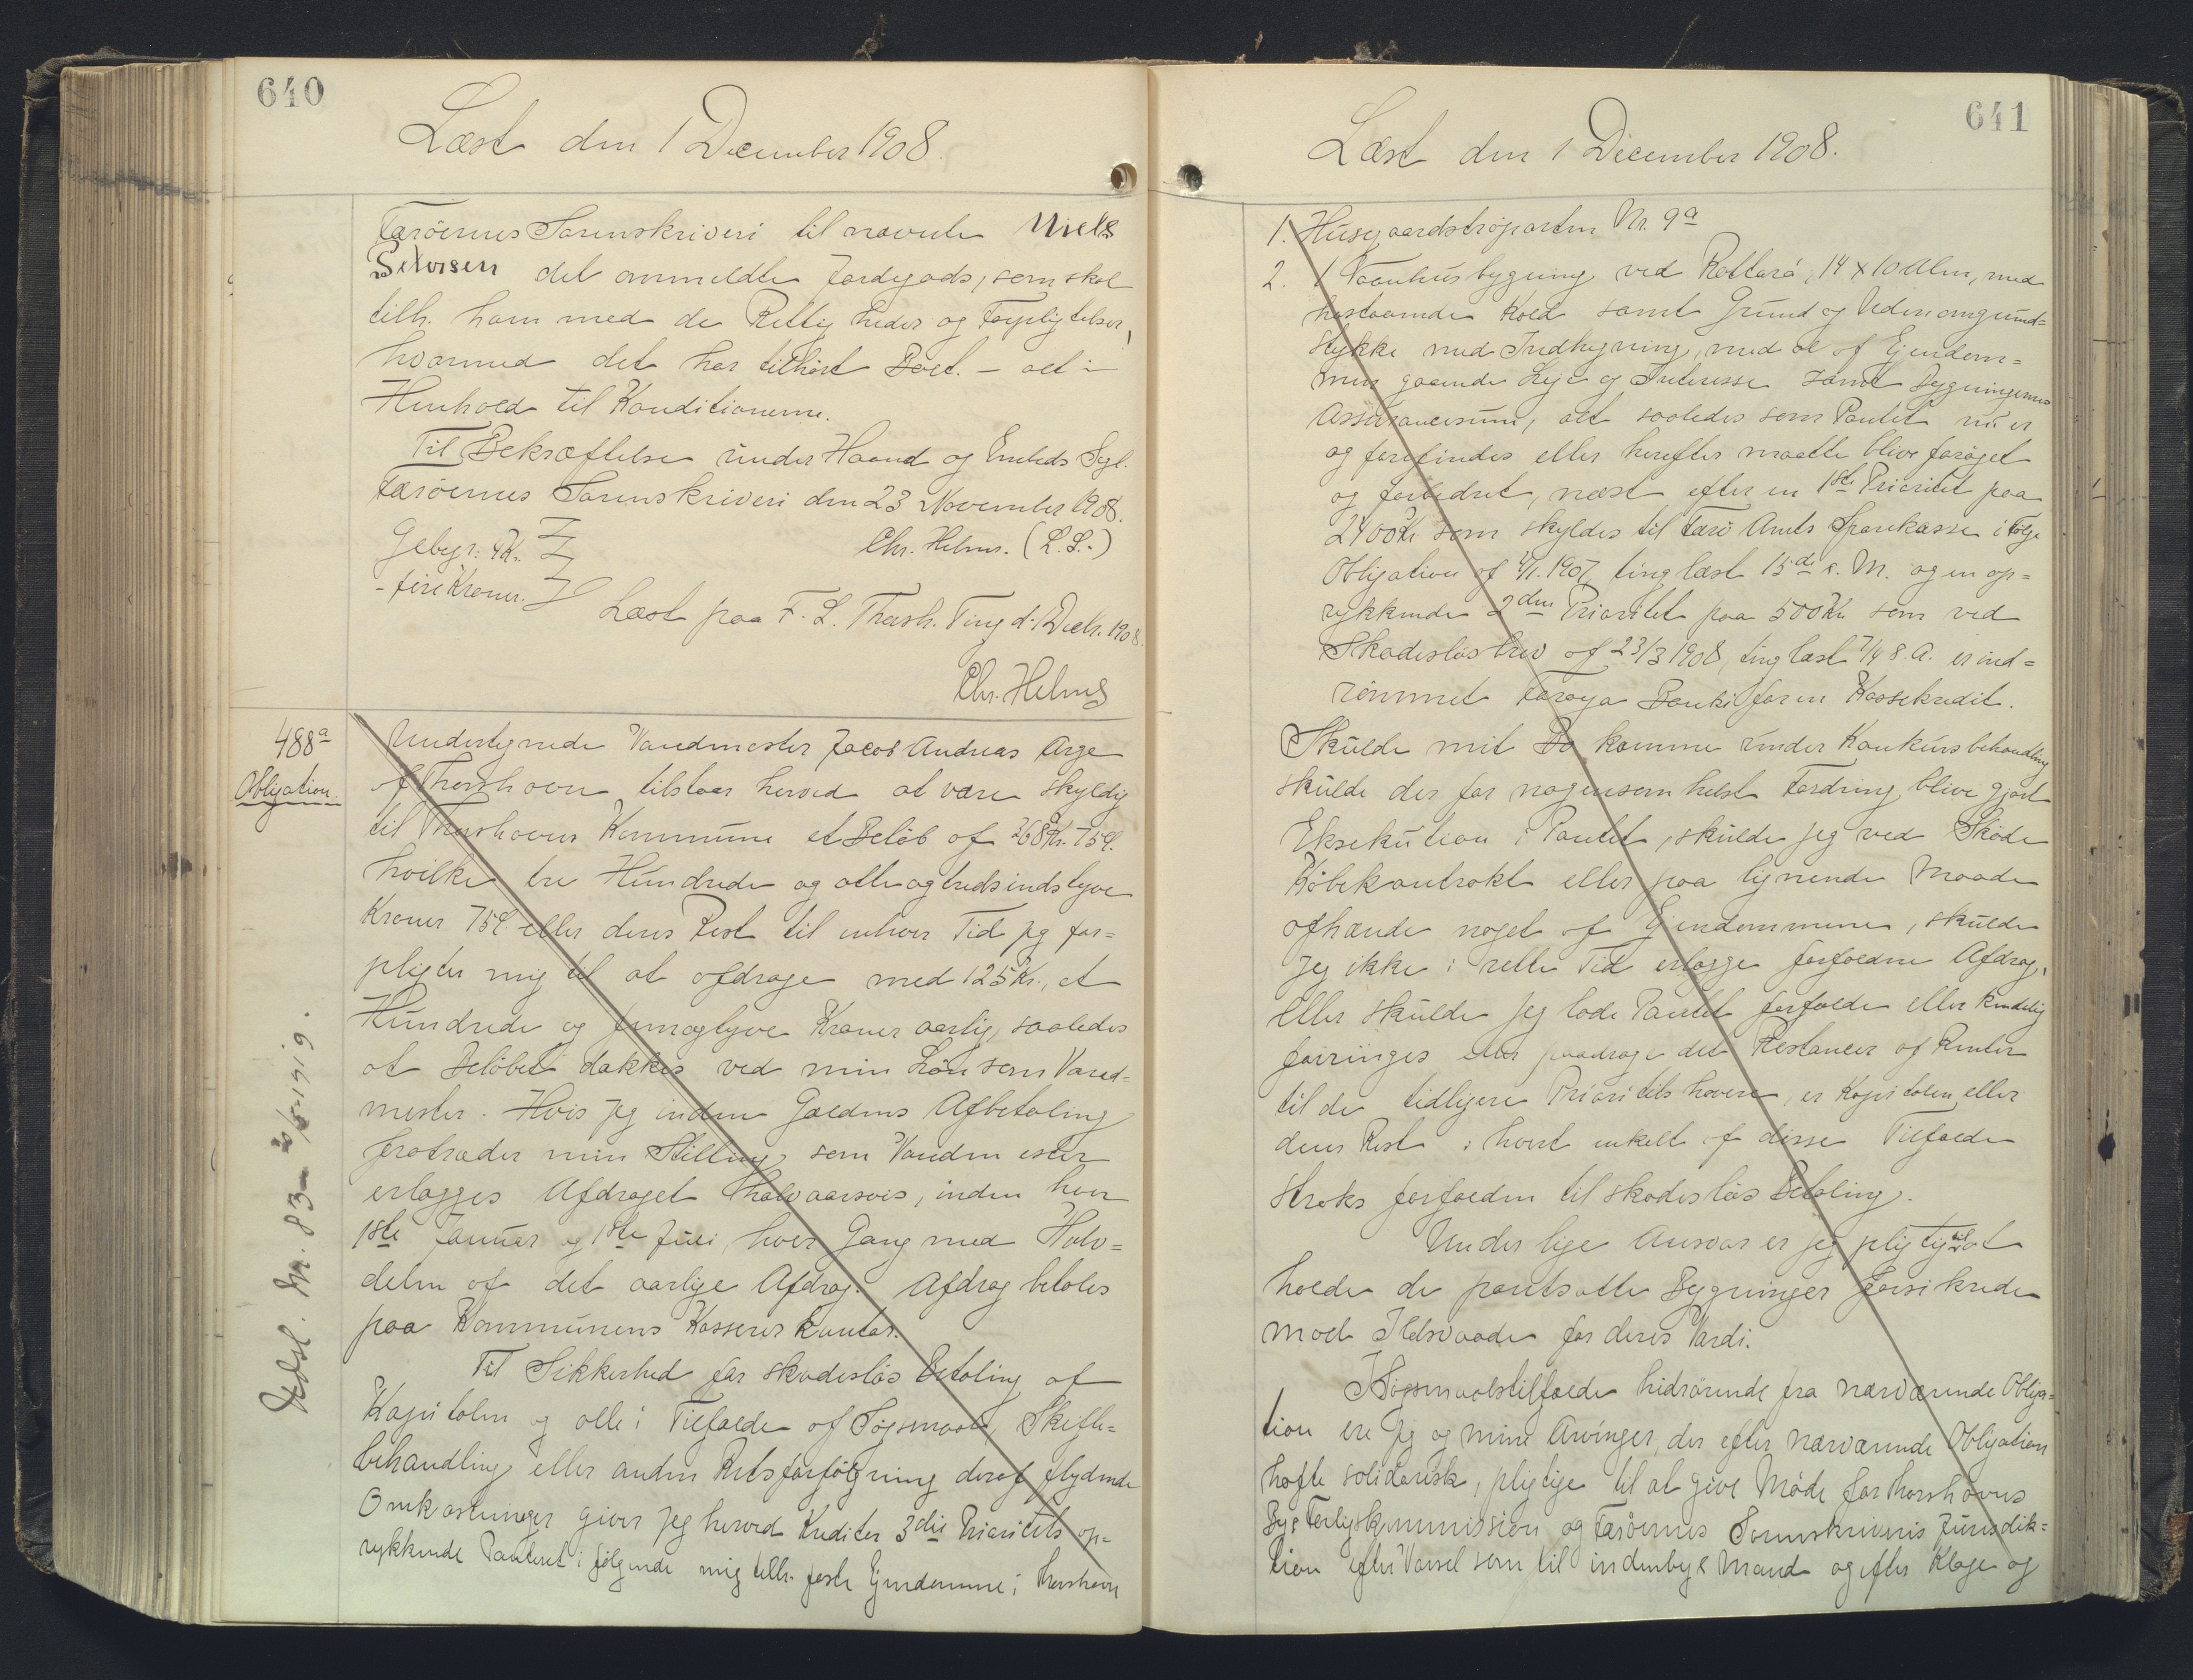 640
Læst den 1 December 1908.
Færöernes Sorenskriveri til nævnte Niels
Sivertsen det ommeldte Jordegods, som skal
tilh. ham med de Rettigheder og Forpligtelser,
hvormed det har tilhört Boet. – alt i
Henhold til Konditionerne.
Til Bekræftelse under Haand og Embeds Segl.
Færöernes Sorenskriveri den 23 November 1908.
Gebyr: 4 Kr.
Chr. Helms. (L.S.)
- fire Kroner.
Læst paa F. L. Thorsh. Ting d. 1 Decbr. 1908
Chr. Helms
488 a
Obligation.
Undertegnede Vandmester Jacob Andreas Arge
af Thorshavn tilstaar herved at være skyldig
til Thorshavns Kommune et Belöb af 368 Kr. 75 Ø.
hvilke tre Hundrede og otte og tredsindstyve
Kroner 75 Ø eller deres Rest til enhver Tid jeg for=
pligter mig til at afdrage med 125 Kr., et
Hundrede og femogtyve Kroner aarlig, saaledes
at Belöbet dækkes ved min Lön som Vand=
mester. Hvis jeg inden Gældens Afbetaling
fratræder min Stilling som Vandmester
erlægges Afdraget halvaarsvis, inden hver
1ste Januar og 1ste Juli, hver Gang med Halv=
delen af det aarlige Afdrag. Afdrag betales
paa Kommunens Kasserer Kontor.
Til Sikkerhed for skadeslös Betaling af
Kapitalen og alle i Tilfælde af Sögsmaal, Skifte=
behandling eller anden Retsforfölgning deraf flydende
Omkostninger giver jeg herved Kreditor 3die Prioritets op=
rykkende Panteret i fölgende mig tilh. faste Ejendomme i Thorshavn
Udsl. Nr. 83 – 1919.
641
Læst den 1 December 1908.
1. Husegaardströparten Nr. 9 a
2. 1 Vaanhusbygning ved Rættará, 14 x 10 Alen, med
hostaaende Kold samt Grund og Udenomsgrund=
stykke med Indhegning, med al af Ejendom=
men gaaende Leje og Interesse samt Bygningernes
Assurancesum, alt saaledes som Pantet nu er
og forefindes eller herefter maatte blive foröget
og forbedret, næst efter en 1ste Prioritet paa
2400 Kr som skyldes til Færö Amts Sparekasse i Fölge
Obligation af 1907, tinglæst 15de s. M. og en op=
rykkende 2den Prioritet paa 500 Kr som ved
Skadeslösbrev af 23/3 1908, tinglæst 7/4 s. A. er ind=
römmet Foroya Banki for en Kassekredit.
Skulde mit Bo komme under Konkursbehandling
skulde der for nogensomhelst Fordring blive gjort
Eksekution i Pantet, skulde jeg ved Sköde
Köbekontrakt eller paa lignende Maade
afhænde noget af Ejendommene, skulde
jeg ikke i rette Tid erlægge forfaldne Afdrag,
eller skulde jeg lade Pantet forfalde eller kendelig
forringes eller paadrage det Restancer af Renter
til de tidligere Prioritets havere, er Kapitalen eller
dens Rest i hvert enkelt af disse Tilfælde
straks forfalden til skadeslös Betaling.
Under lige Ansvar er jeg pligtig til at
holde de pantsatte Bygninger forsikrede
mod Ildsvaade for deres Værdi.
I Sögsmaalstilfælde hidrörende fra nærværende Obliga=
tion ere jeg og mine Arvinger, der efter nærværende Obligation
hæfte solidarisk, pligtige til at give Möde for Thorshavns
Bys Forligskommission og Færöernes Sorenskriveris Jurisdik=
tion efter Varsel som til indenbys Mand og efter Klage og